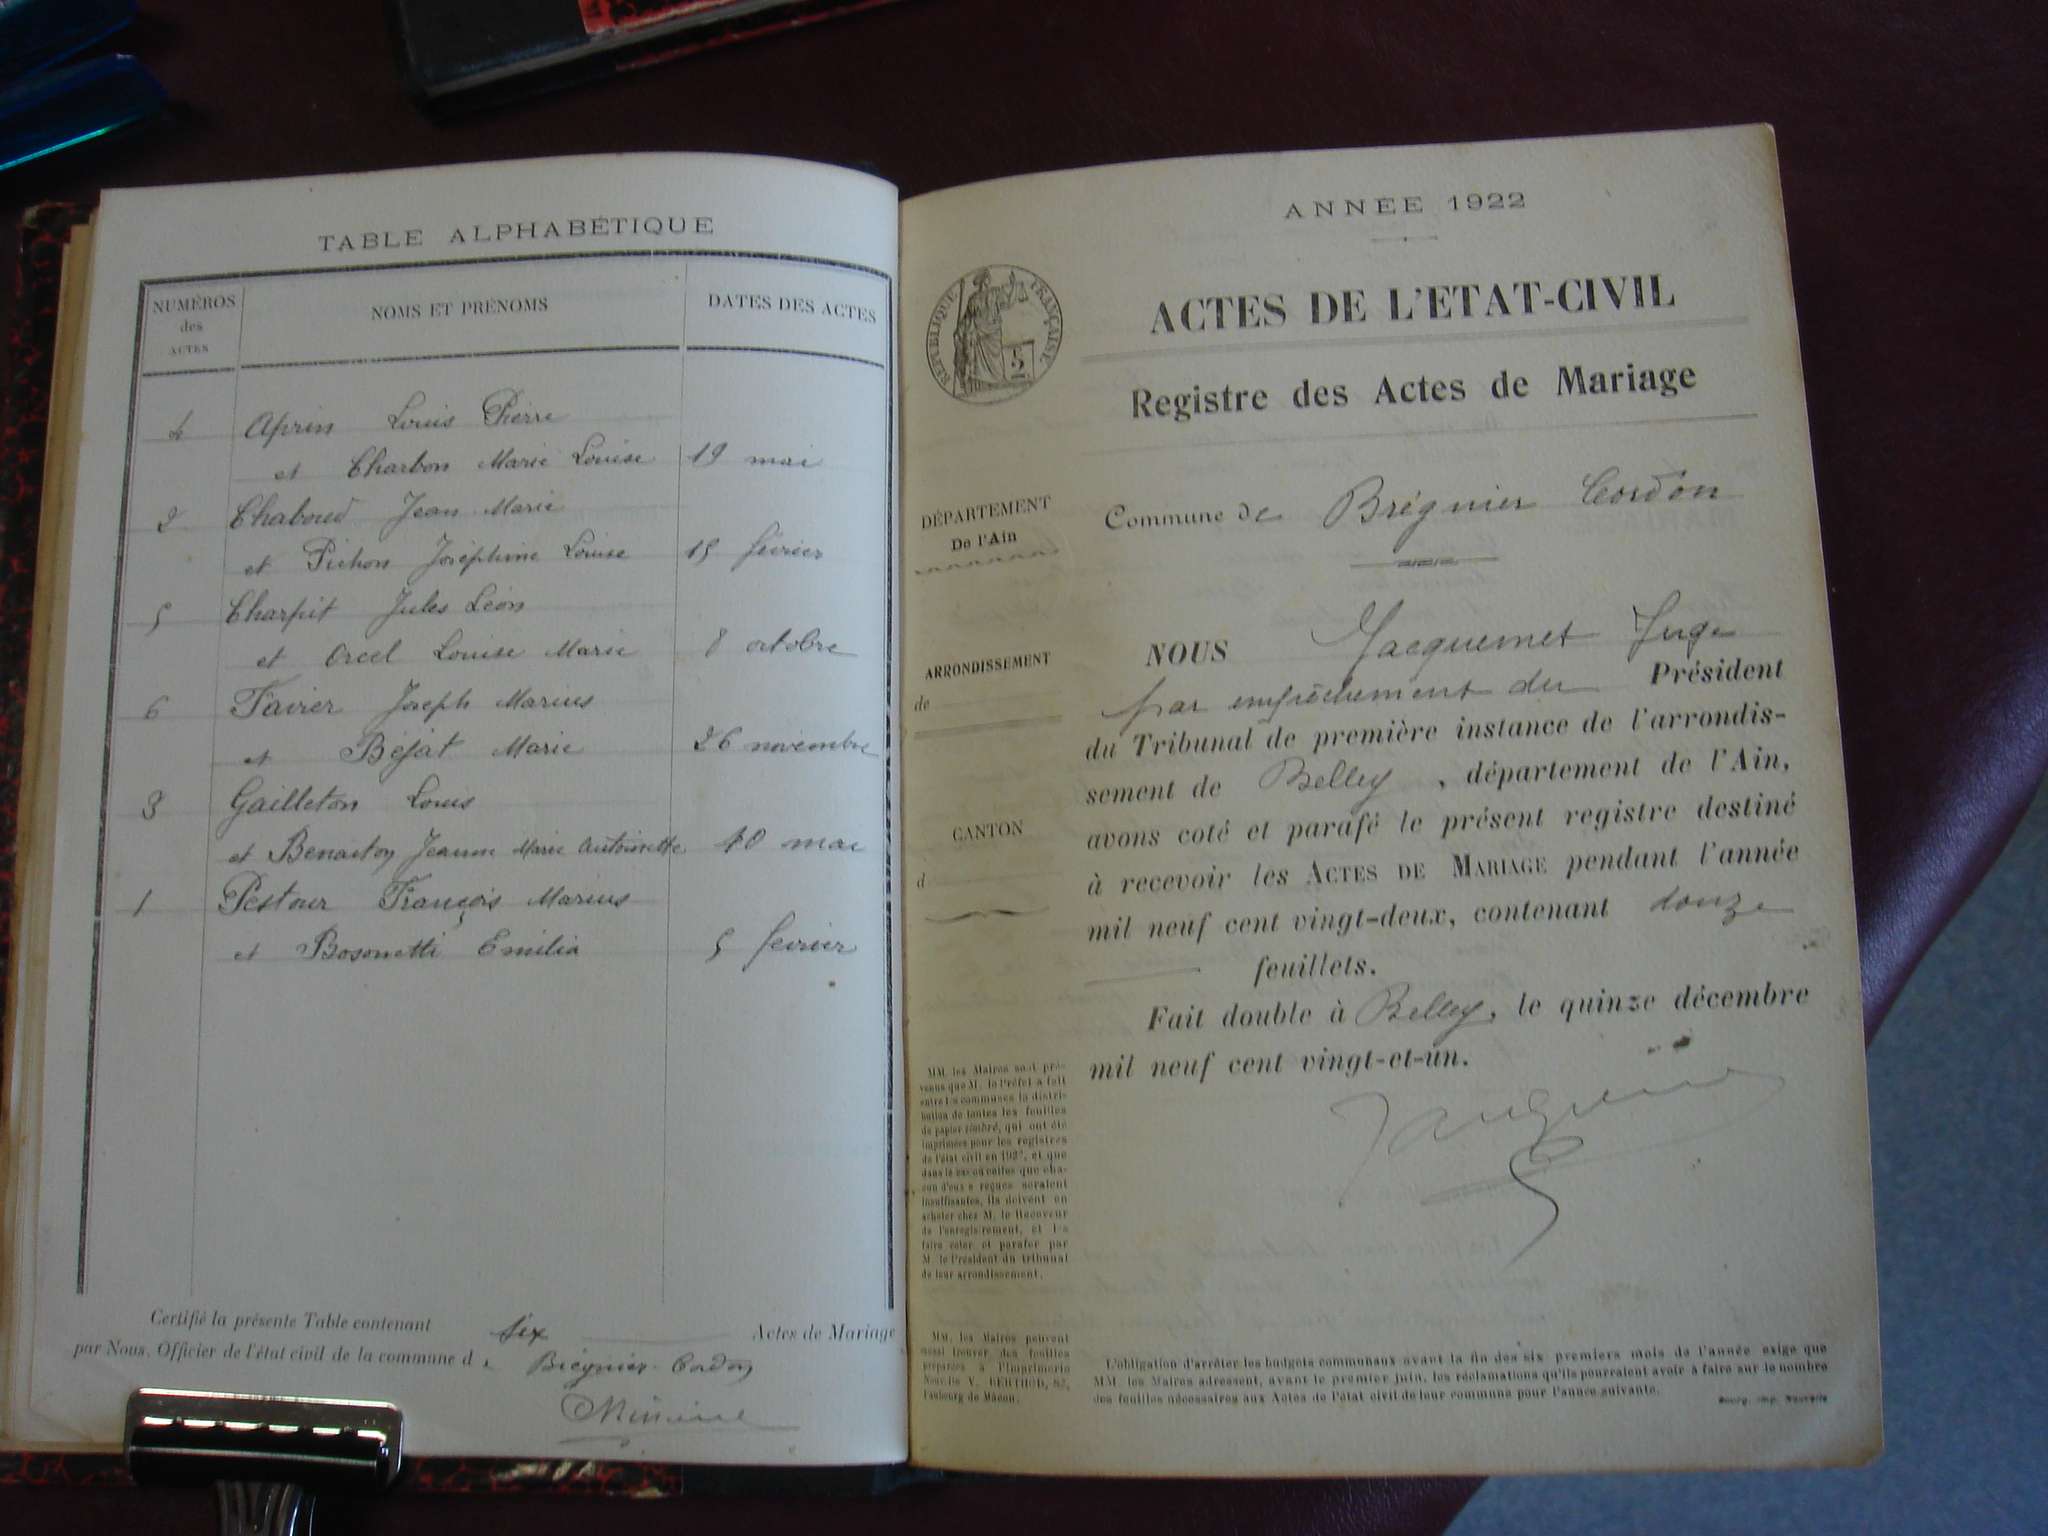 TABLE ALPHABÉTIQUE
NUMÉROS
des
ACTES
NOMS ET PRÉNOMS
DATES DES ACTES
4 Aprin Louis Pierre
et Charbon Marie Louise 19 mai
2 Chaboud Jean Marie
et Pichon Joséphine Louise 15 février
5 Charpit Jules Léon
et Orcel Louise Marie 8 octobre
6 Favier Joseph Marius
et Béjat Marie 26 novembre
3 Gailleton Louis
et Benaiton Jeanne Marie Antoinette 10 mai
1 Pestour François Marius
et Bosonetti Emilia 5 février
Certifié la présente Table contenant six Actes de Mariage
par Nous, Officier de l'état civil de la commune de Brégnier-Cordon
ANNÉE 1922
RÉPUBLIQUE FRANÇAISE
5
2
ACTES DE L'ETAT-CIVIL
Registre des Actes de Mariage
DÉPARTEMENT
De l'Ain
Commune de Brégnier Cordon
ARRONDISSEMENT
de
CANTON
d
NOUS Jacquemet Juge
par empêchement du Président
du Tribunal de première instance de l'arrondis-
sement de Belley, département de l'Ain,
avons coté et parafé le présent registre destiné
à recevoir les ACTES DE MARIAGE pendant l'année
mil neuf cent vingt-deux, contenant douze
feuillets.
Fait double à Belley, le quinze décembre
mil neuf cent vingt-et-un.
MM. les Maires sont pré-
venus que M. le Préfet a fait
entre les communes la distri-
bution de toutes les feuilles
de papier timbré, qui ont été
imprimées pour les registres
de l'état civil en 1922, et que
dans le cas où celles que cha-
cun d'eux a reçues seraient
insuffisantes, ils doivent en
acheter chez M. le Receveur
de l'enregistrement, et les
faire coter et parafer par
M. le Président du tribunal
de leur arrondissement.
MM. les Maires peuvent
aussi trouver des feuilles
préparées à l'Imprimerie
Nouvelle V. BERTHOD, 82,
faubourg de Mâcon.
L'obligation d'arrêter les budgets communaux avant la fin des six premiers mois de l'année exige que
MM. les Maires adressent, avant le premier juin, les réclamations qu'ils pourraient avoir à faire sur le nombre
des feuilles nécessaires aux Actes de l'état civil de leur commune pour l'année suivante.
Bourg, imp. Nouvelle